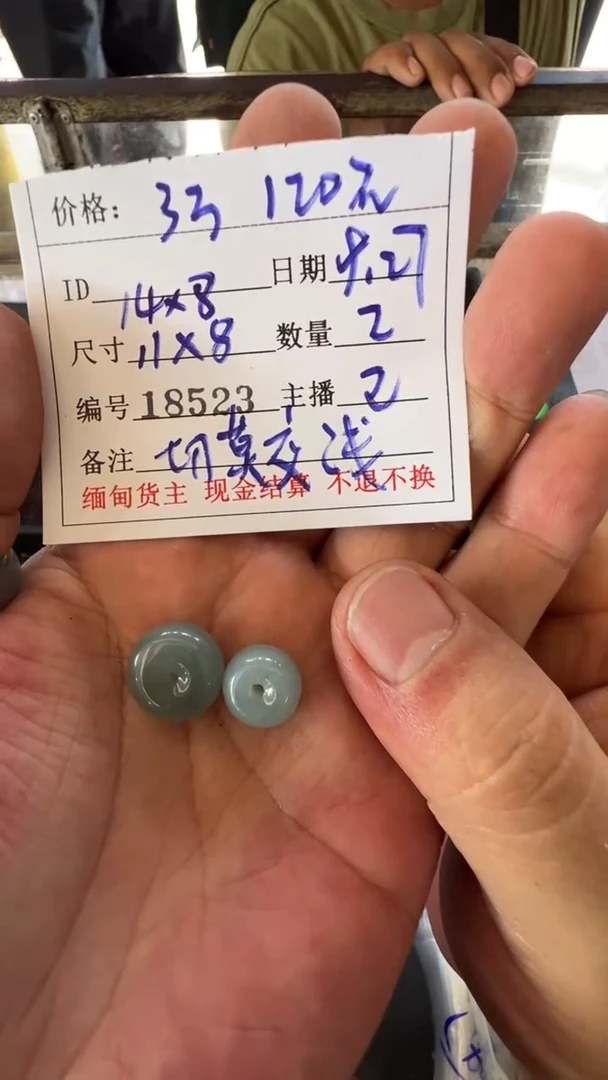 价格： 3号 120元
ID 14×8 日期 9.27
尺寸 11×8 数量 2
编号 18523 主播 2
备注 切莫交浅
缅甸货主 现金结算 不退不换